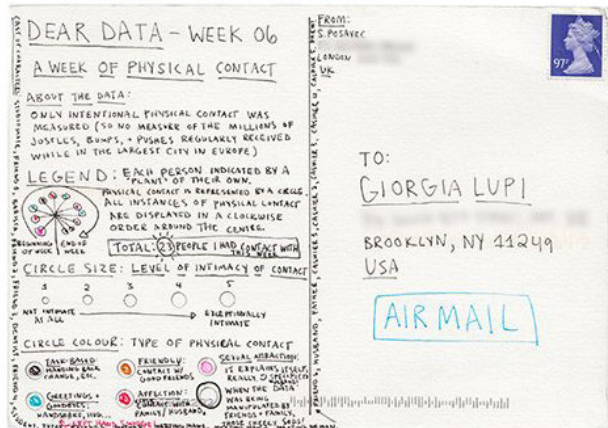 DEAR DATA - WEEK 06
A WEEK OF PHYSICAL CONTACT
ABOUT THE DATA:
ONLY INTENTIONAL PHYSICAL CONTACT WAS
MEASURED (SO NO MEASURE OF THE MILLIONS OF
JOSTLES, BUMPS, + PUSHES REGULARLY RECEIVED
WHILE IN THE LARGEST CITY IN EUROPE)
LEGEND: EACH PERSON INDICATED BY A
"PLANT" OF THEIR OWN.
PHYSICAL CONTACT IS REPRESENTED BY A CIRCLE.
ALL INSTANCES OF PHYSICAL CONTACT
ARE DISPLAYED IN A CLOCKWISE
ORDER AROUND THE CENTRE.
BEGINNING OF WEEK
END OF WEEK
TOTAL: 23 PEOPLE I HAD CONTACT WITH
THIS WEEK
CIRCLE SIZE: LEVEL OF INTIMACY OF CONTACT
1 2 3 4 5
NOT INTIMATE
AT ALL
EXCEPTIONALLY
INTIMATE
CIRCLE COLOUR: TYPE OF PHYSICAL CONTACT
TASK-BASED:
HANDING BACK
CHANGE, ETC.
GREETINGS +
GOODBYES:
HANDSHAKE, HUG...
FRIENDLY:
CONTACT W/
GOOD FRIENDS
AFFECTION:
CONTACT WITH
FAMILY/HUSBAND
SEXUAL ATTRACTION:
IT EXPLAINS ITSELF,
REALLY.
WHEN THE DATA
WAS BEING
MANIPULATED BY
FRIENDS + FAMILY,
THOSE CHEEKY SODS!
FROM:
S. POSAVEC
LONDON
UK
97P
TO:
GIORGIA LUPI
BROOKLYN, NY 11249
USA
AIR MAIL